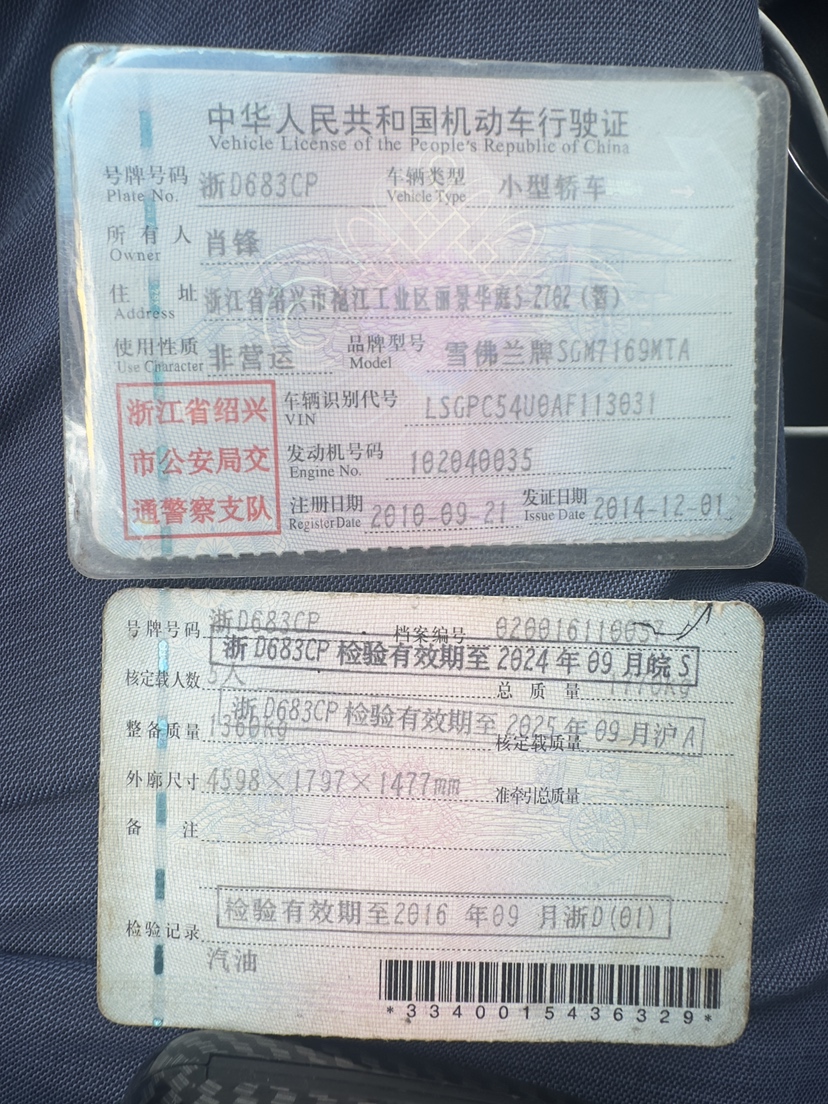 中华人民共和国机动车行驶证
Vehicle License of the People's Republic of China
号牌号码 Plate No. 浙D683CP 车辆类型 Vehicle Type 小型轿车
所有人 Owner 肖锋
住址 Address 浙江省绍兴市袍江工业区丽景华庭5-2702(暂)
使用性质 Use Character 非营运 品牌型号 Model 雪佛兰牌SGM7169MTA
浙江省绍兴
市公安局交
通警察支队
车辆识别代号 VIN LSGPC54U0AF113031
发动机号码 Engine No. 102040035
注册日期 Register Date 2010-09-21 发证日期 Issue Date 2014-12-01
号牌号码 浙D683CP 档案编号 020016110057
浙D683CP 检验有效期至 2024 年 09 月皖 S
核定载人数 5人 总质量 1770Kg
浙D683CP 检验有效期至 2025 年 09 月沪 A
整备质量 1360Kg 核定载质量
外廓尺寸 4598×1797×1477mm 准牵引总质量
备注
检验有效期至2016 年09 月浙D(01)
检验记录
汽油
*3340015436329*